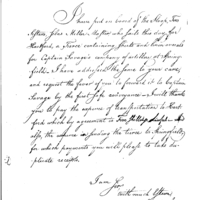 I have put on board of the Sloop, Two
Esther, Miller Master who sails this day for
Hartford, a Tierce containing
for Captain Savage's company of artillery at Spring-
field. I have addressed the same to your care,
and request the favor of you to forward it to Captain
Savage by the first safe conveyance. I will thank
you to pay the expense of transportation to Hart-
ford which by agreement is
also, the expense of sending the tierce to Springfield,
for which payments you will please to take du-
plicate receipts.
I am Sir,
with much esteem,